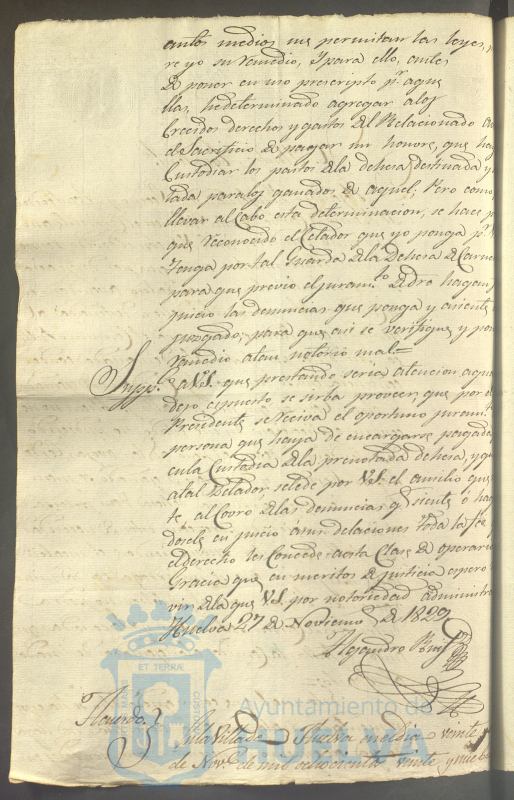 antos medios me permitan las leyes,
re yo su remedio, Y para ello, antes
de poner en uso prescripto pr. aque
llas, hedeterminado agregar a los
Crecidos derechos y gastos del Relacionado
el Sacrificio de pagar un hombre, que
Custodiar los pastos dela dehesa destinada y
tada para los ganados de aquel; Pero como
llevar al Cabo esta determinacion, se hace
que reconocido el Celador que yo ponga pr.
Tenga por tal Guarda dela Dehesa de Carne
para que previo el juramto.
juicio las denuncias que ponga y asiente
juzgado; para que asi se verifique y pon
remedio atan notorio mal=
Suppco. a V.S. que prestando seria atencion aqu
dejo espuesto se sirba proveer, que por el
Presidente se reciva el oportuno juram.
persona que haya de encargarse pagada
enla Custodia dela prenotada dehesa, y q
atal Zelador, sele de por V.S. el ausilio que
te, al Covro delas denuncias q. siente ó ha
dosele en juicio asus delaciones toda la fee
el derecho les Concede aesta Clase de operar
Gracia que en meritos de justicia espero
vir dela que V.S. por notoriedad administra
Huelva 27 de Noviemb. de 1829
Alejandro
ET TERRAE
CUSTODIA
Ayuntamiento de
HUELVA
Acuerdo
En la Villa de Huelva en dia veinte
de Nove. de mil ochocientos veinte y nuebe